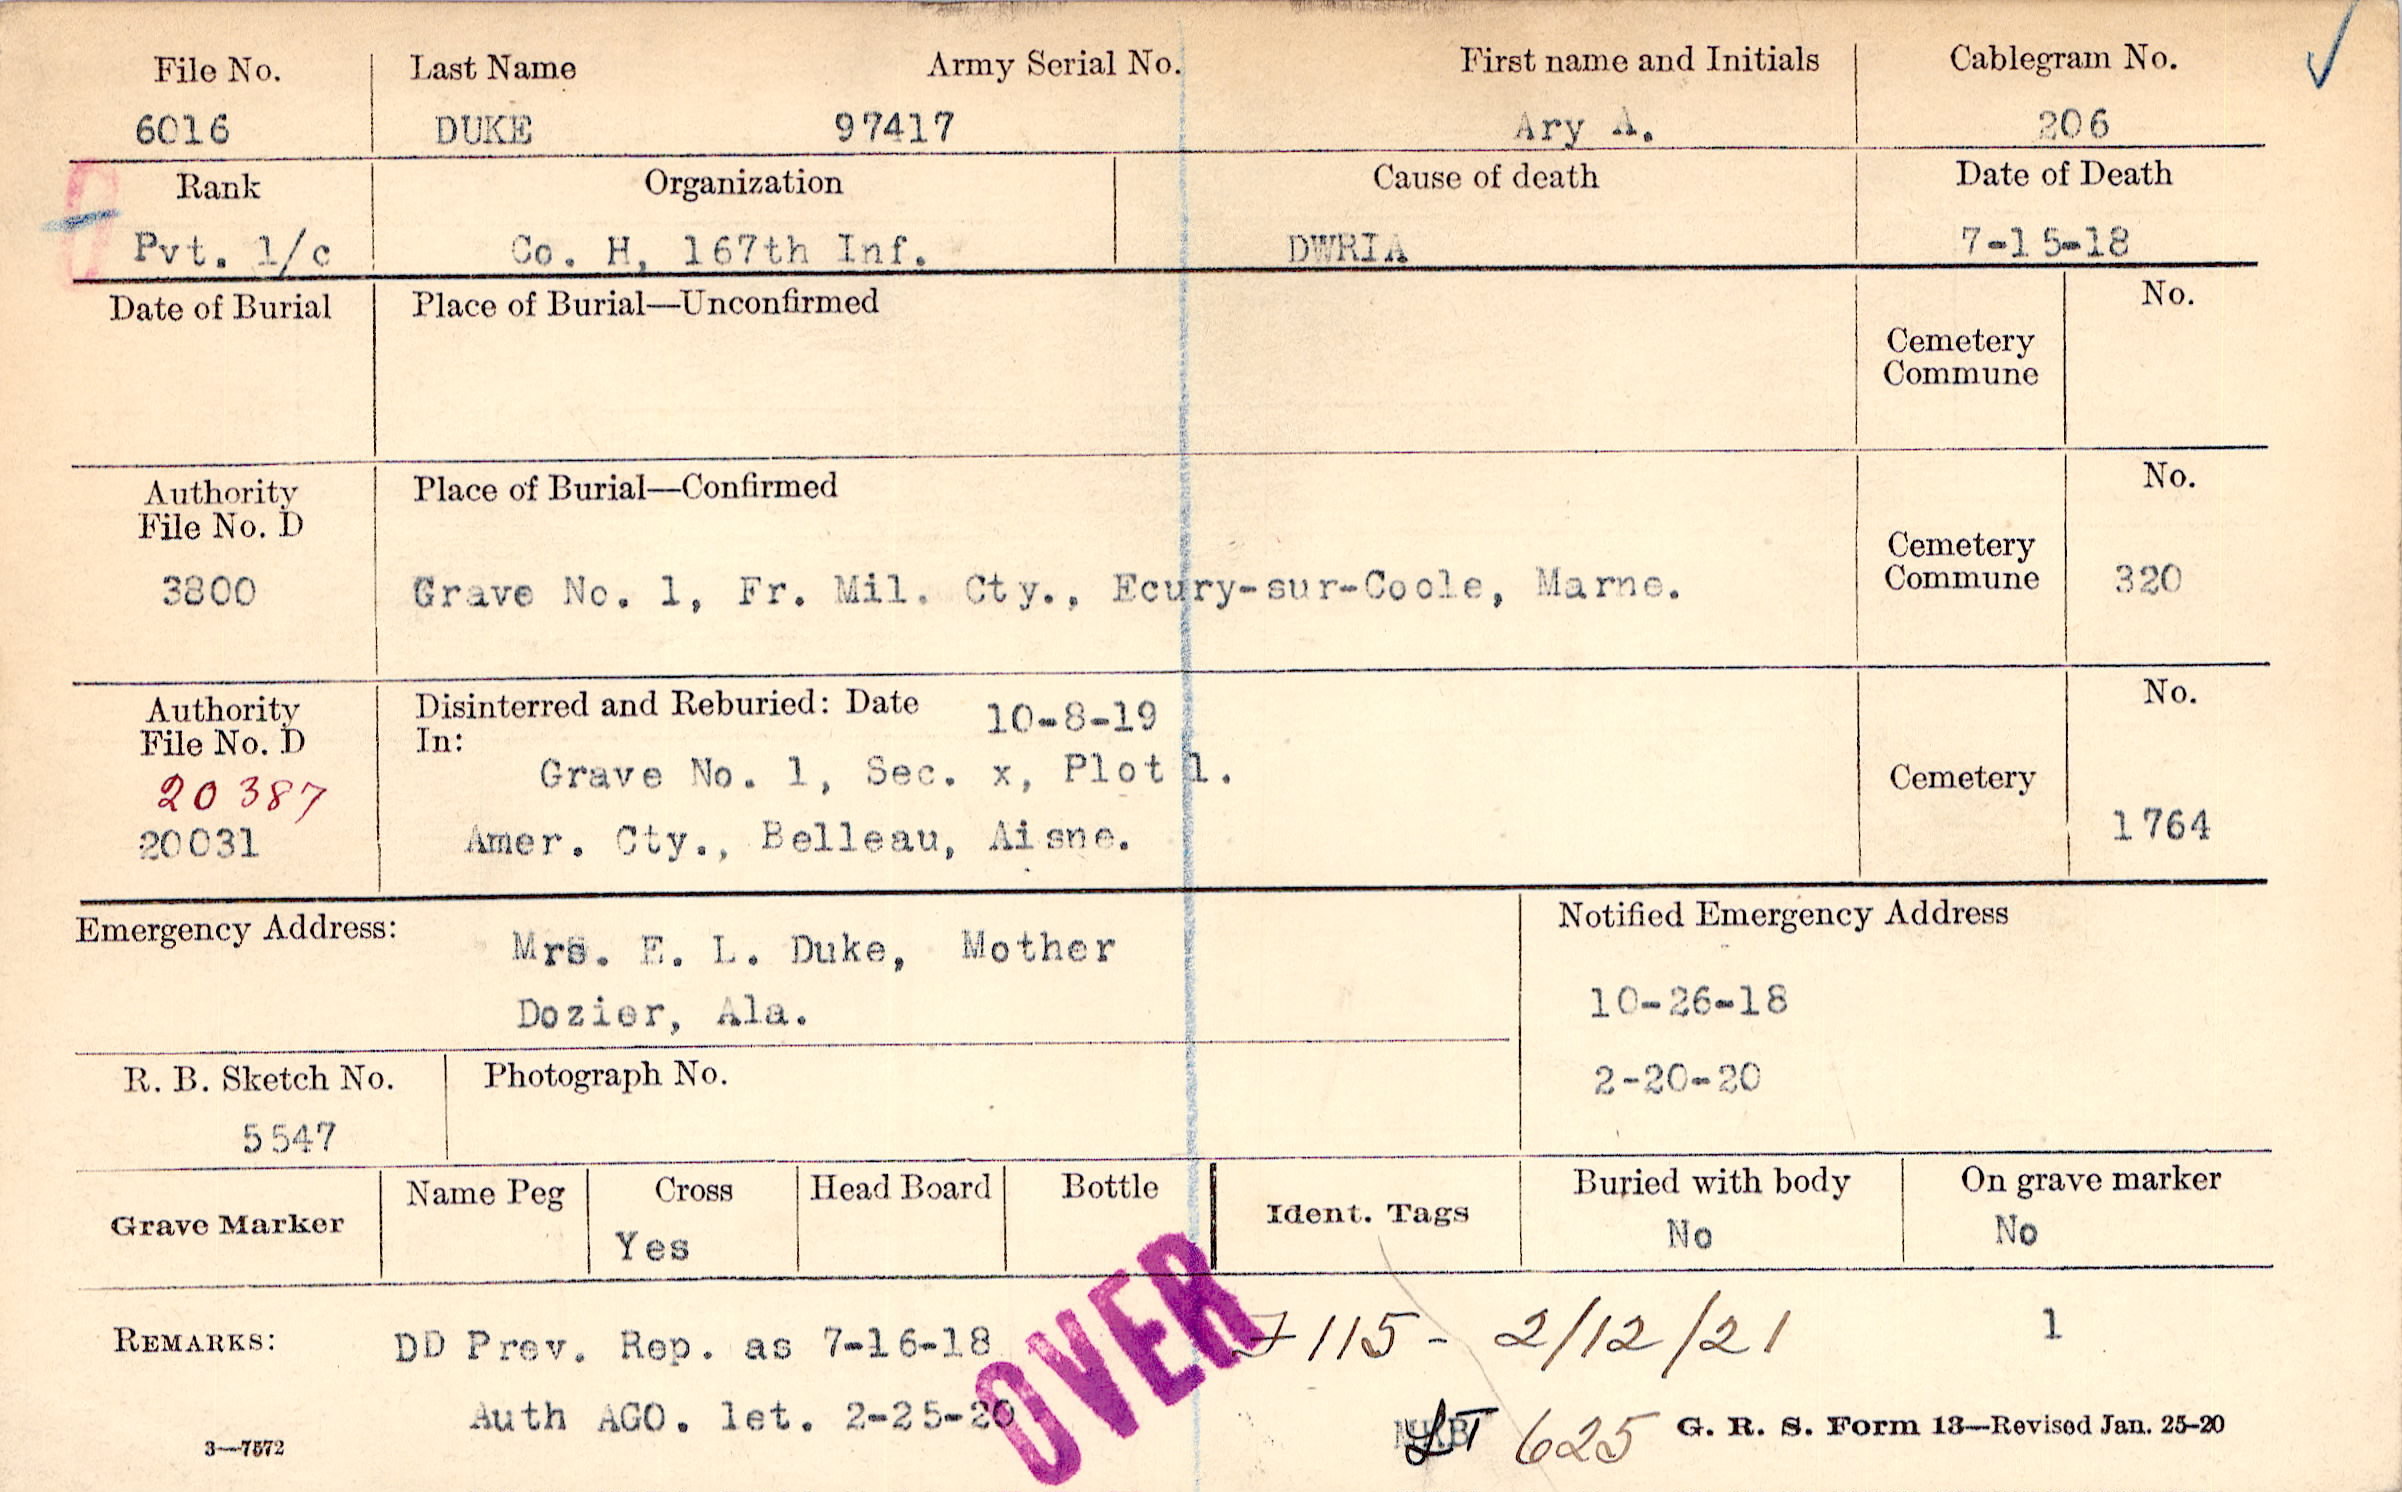 File No. Last Name Army Serial No. First name and Initials Cablegram No.
6016 DUKE 97417 Ary A. 206
Rank Organization Cause of death Date of Death
Pvt. 1/c Co. H, 167th Inf. DWRIA 7-15-18
Date of Burial Place of Burial—Unconfirmed No.
Cemetery
Commune
Authority Place of Burial—Confirmed No.
File No. D
Cemetery
Commune
3800 Grave No. 1, Fr. Mil. Cty., Ecury-sur-Coole, Marne. 320
Authority Disinterred and Reburied: Date 10-8-19 No.
File No. D In:
20387 Grave No. 1, Sec. x, Plot 1. Cemetery
20031 Amer. Cty., Belleau, Aisne. 1764
Emergency Address: Notified Emergency Address
Mrs. E. L. Duke, Mother
10-26-18
Dozier, Ala.
2-20-20
R. B. Sketch No. Photograph No.
5547
Grave Marker Name Peg Cross Head Board Bottle Ident. Tags Buried with body On grave marker
Yes No No
REMARKS: DD Prev. Rep. as 7-16-18 OVER 7115- 2/12/21 1
Auth AGO. let. 2-25-20
625 G. R. S. Form 13—Revised Jan. 25-20
3—7572